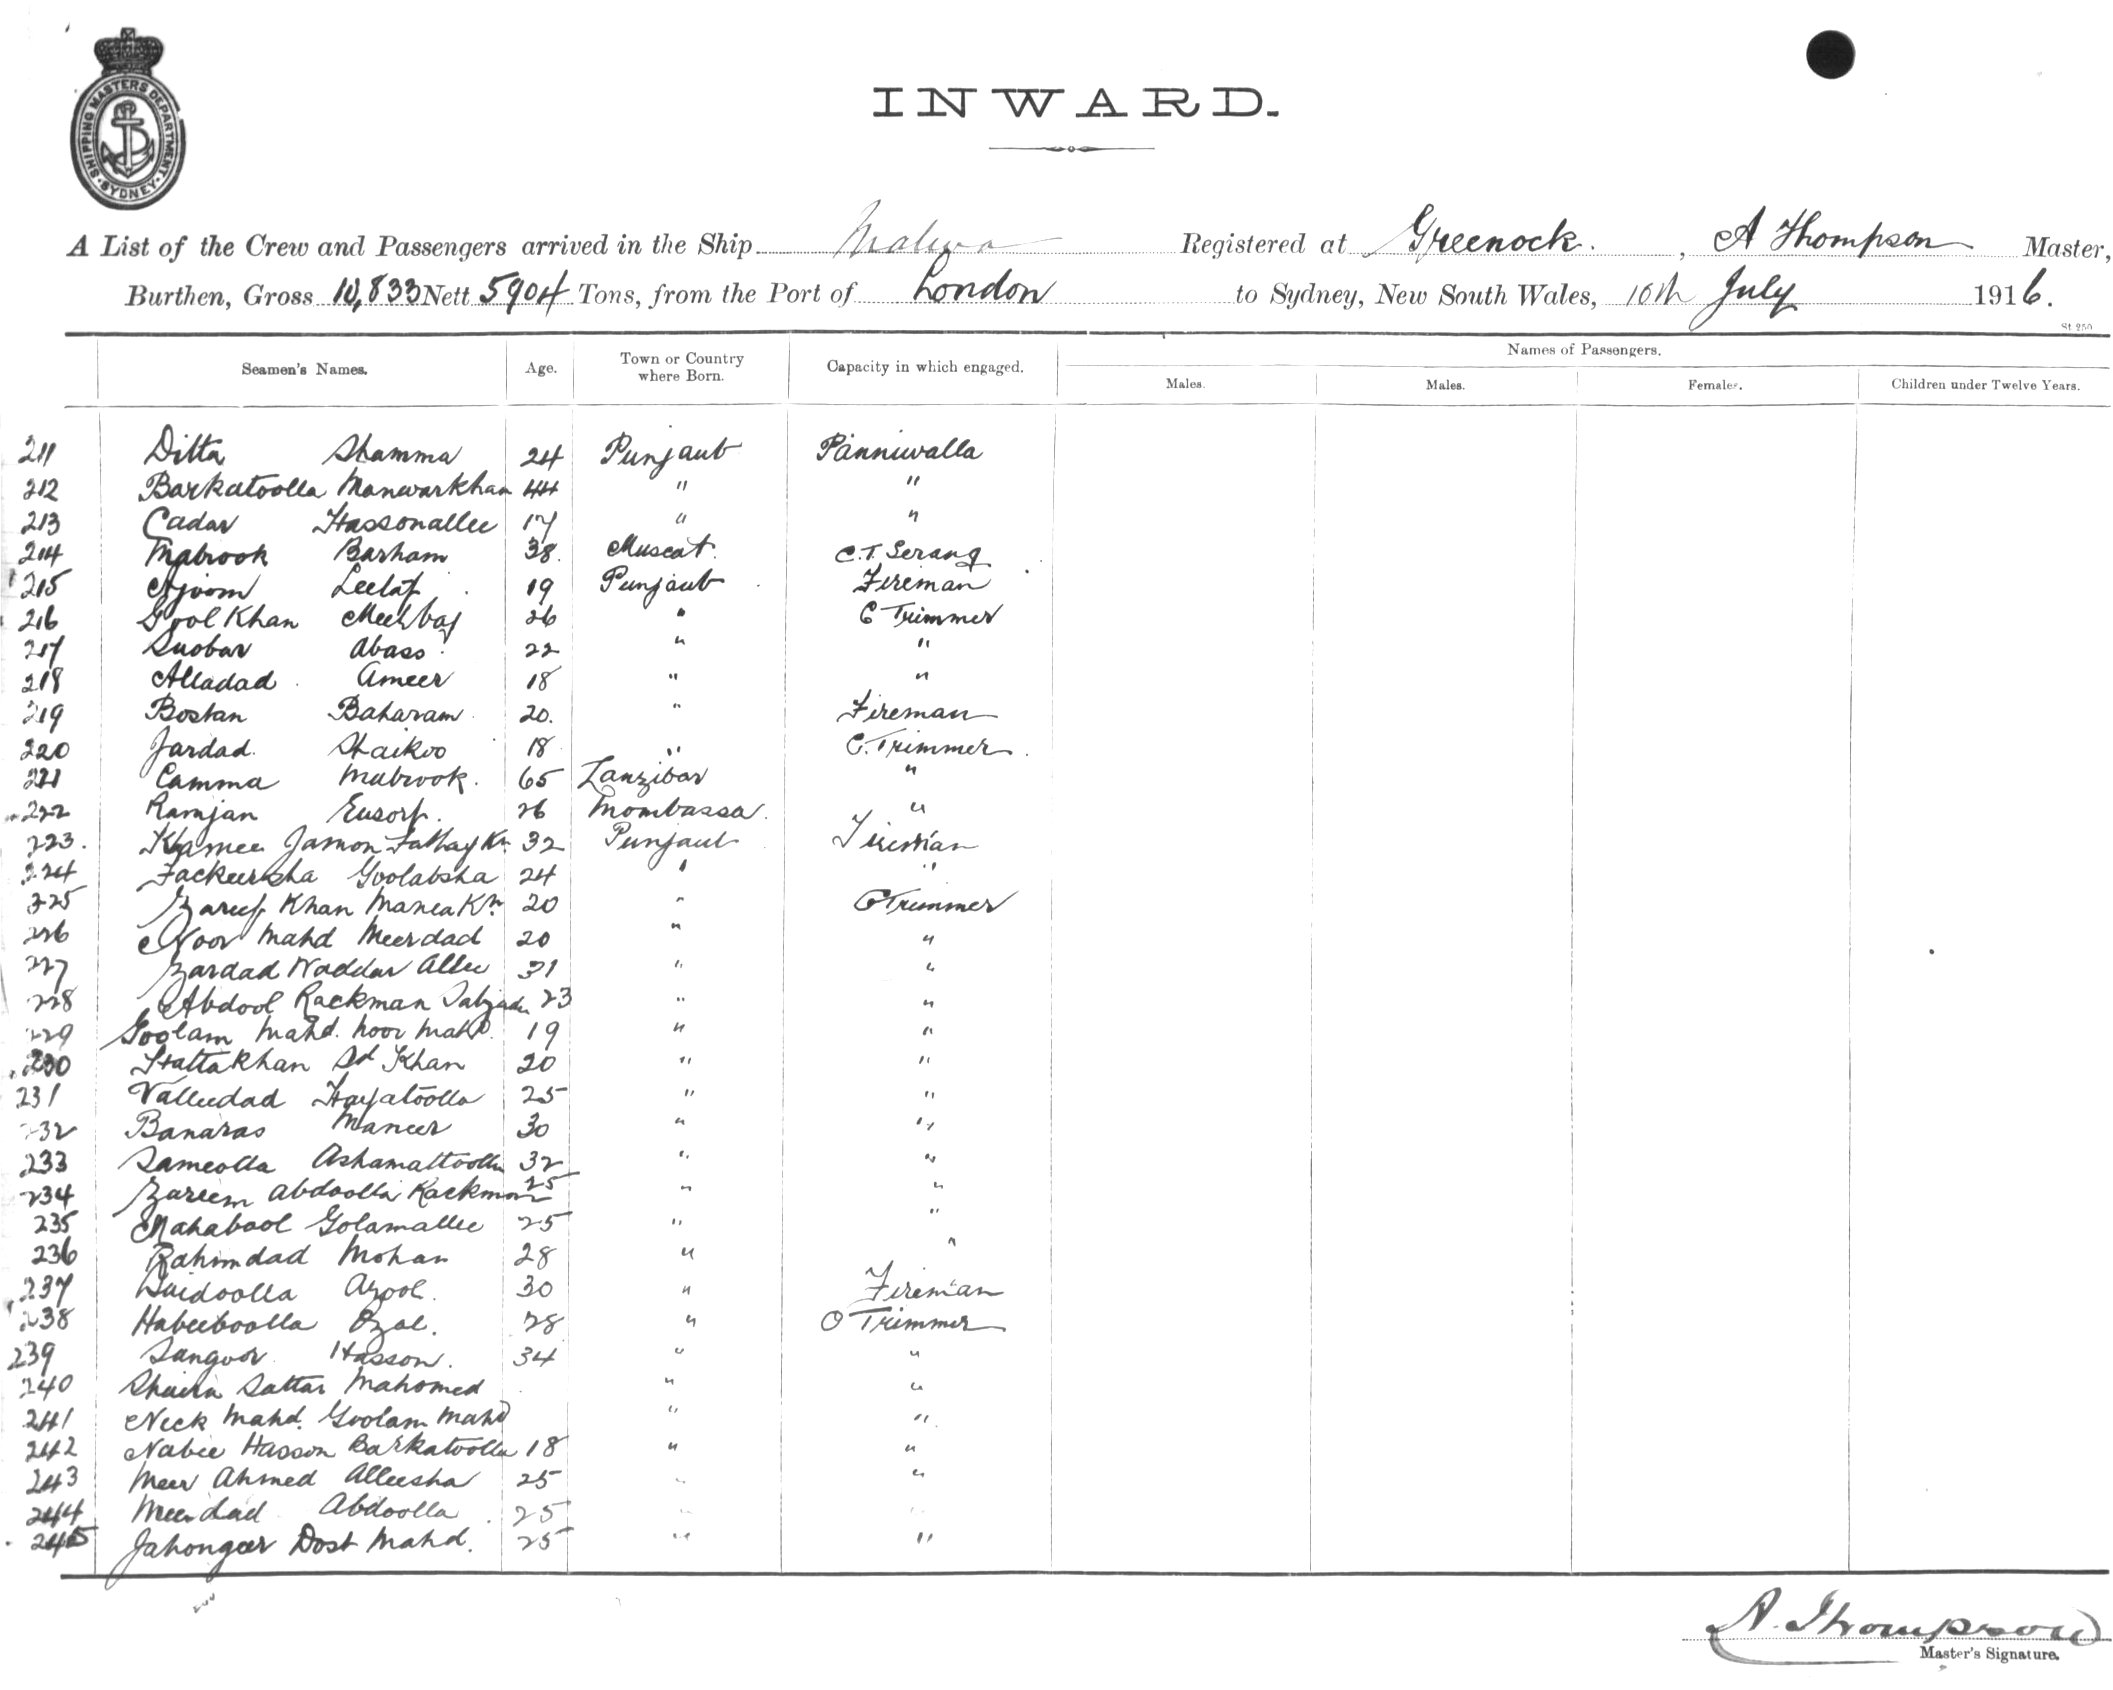 SHIPPING MASTERS DEPARTMENT
SYDNEY
INWARD.
A List of the Crew and Passengers arrived in the Ship Malwa Registered at Greenock. , A Thompson Master,
Burthen, Gross 10,833 Nett 5904 Tons, from the Port of London to Sydney, New South Wales, 10th July 1916.
St 250
Seamen's Names. Age. Town or Country where Born. Capacity in which engaged. Names of Passengers.
Males. Males. Females. Children under Twelve Years.
211 Ditta Shamma 24 Punjaub Panniwalla
212 Barkatoolla Manwarkhan 44 " "
213 Cadar Hassonallee 17 " "
214 Mabrook Barham 38. Muscat. C.T. Serang
215 Ajoom 19 Punjaub Fireman
216 Gool Khan 26 " C Trimmer
217 Suobar Abass 22 " "
218 Alladad Ameer 18 " "
219 Bostan Baharam 20. " Fireman
220 Jardad. Shaikoo 18 " C. Trimmer
221 Camma Mubrook. 65 Zanzibar "
222 Ramjan Eusof. 26 Mombassa. "
223. Jamon Fathay Kn. 32 Punjaub Fireman
224 Fackeersha Goolabsha 24 " "
225 Zareef Khan Manea Kn 20 " C Trimmer
226 Noor Mahd Meerdad 20 " "
227 Zardad Naddar Allee 31 " "
228 Abdool Rackman 23 " "
229 Goolam Mahd. Noor Mahd. 19 " "
230 Hattakhan Sd Khan 20 " "
231 Valleedad Hayatoolla 25 " "
232 Banaras Maneer 30 " "
233 Sameolla Ashamattoolla 32 " "
234 Zareem Abdoolla Rackman 25 " "
235 Mahabool Golamallee 25 " "
236 Rahimdad Mohan 28 " "
237 Azool. 30 " Fireman
238 Habeeboolla Ozal. 28 " C Trimmer
239 Sangoor Hasson. 34 " "
240 Sattar Mahomed " "
241 Neck Mahd. Goolam Mahd " "
242 Nabee Hasson Barkatoolla 18 " "
243 Meer Ahmed Alleesha 25 " "
244 Meerdad Abdoolla 25 " "
245 Jahongeer Dost Mahd. 25 " "
A. Thompson
Master's Signature.